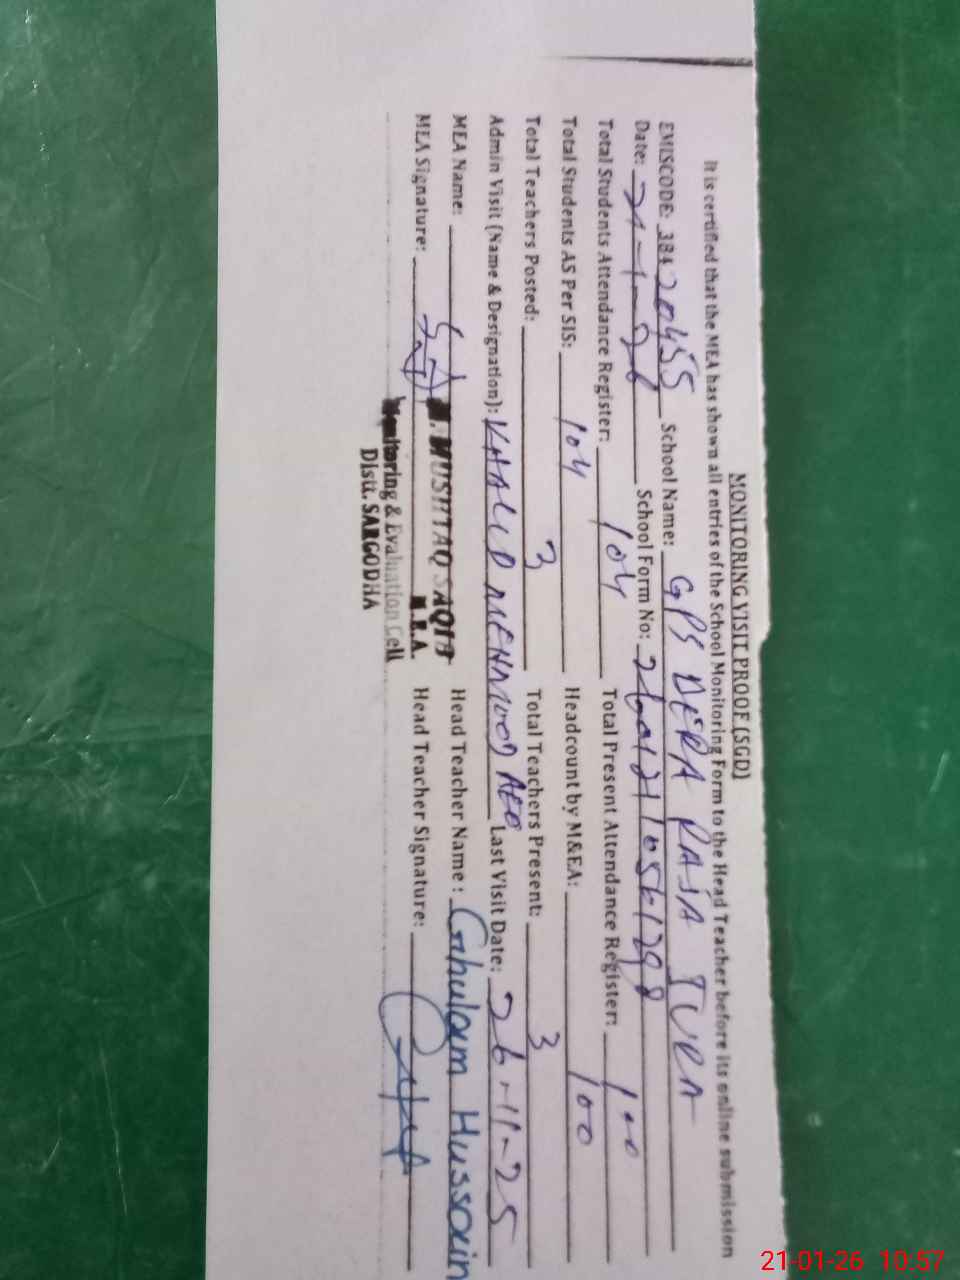 MONITORING VISIT PROOF (SGD)
It is certified that the MEA has shown all entries of the School Monitoring Form to the Head Teacher before its online submission
EMISCODE: 38420455 School Name: GPS DERA RAJA
Date: 21-1-26 School Form No:
Total Students Attendance Register: 104 Total Present Attendance Register: 100
Total Students AS Per SIS: 104 Headcount by M&EA: 100
Total Teachers Posted: 3 Total Teachers Present: 3
Admin Visit (Name & Designation): KHALID MEHMOOD AEO Last Visit Date: 26-11-25
MEA Name: M. MUSHTAQ SAQIB Head Teacher Name: Ghulam Hussain
MEA Signature: M.E.A. Head Teacher Signature:
Monitoring & Evaluation Cell
Distt. SARGODHA
21-01-26 10:57